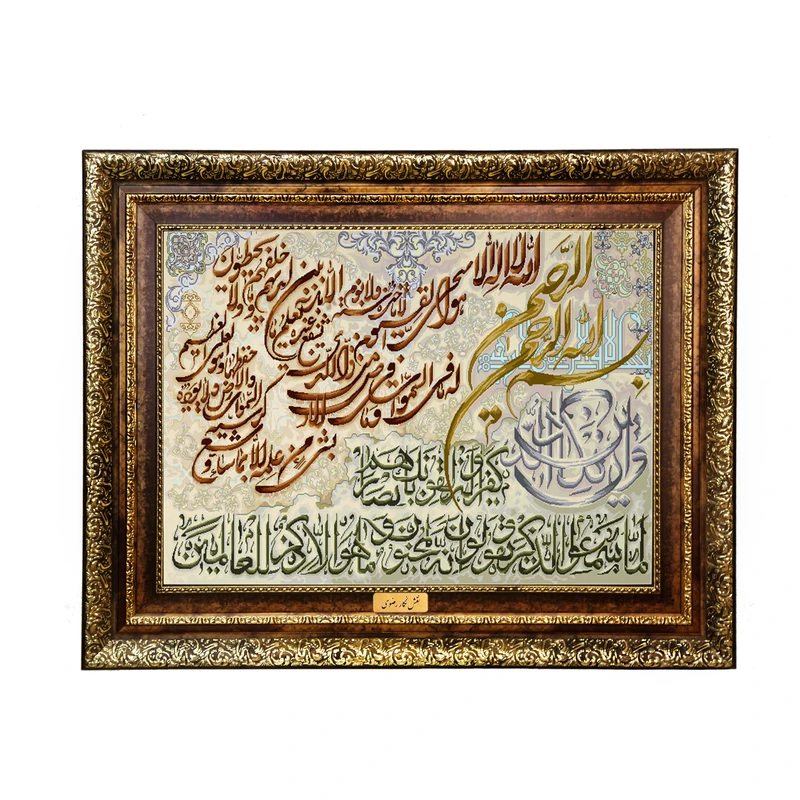 بسم الله الرحمن الرحیم
الله لا اله الا
هو الحی القیوم لا تاخذه سنة و لا نوم
له ما فی السموات و ما فی الارض من ذا الذی
یشفع عنده الا باذنه یعلم ما بین ایدیهم و ما خلفهم و لا یحیطون
بشیء من علمه الا بما شاء وسع
کرسیه السموات والارض و لا یوده حفظهما و هو العلی العظیم
وان یکاد الذین
کفروا لیزلقونک بابصارهم
لما سمعوا الذکر و یقولون انه لمجنون و ما هو الا ذکر للعالمین
نقش نگار رضوی